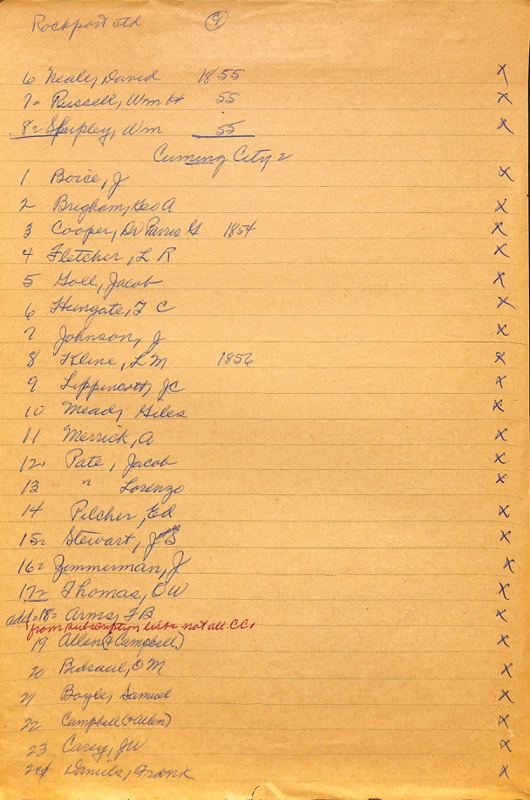 Rockport etd 9
6 Neale, David 1855 x
7= Russell, Wm H 55 x
8= Shipley, Wm 55 x
Cuming City =
1 Boice, J x
2 Brigham, Geo A x
3 Cooper, Dr Parris G 1854 x
4 Fletcher, L R x
5 Goll, Jacob x
6 Hungate, F C x
7 Johnson, J x
8 Kline, L M 1856 x
9 Lippincott, JC x
10 Mead, Giles x
11 Merrick, A x
12. Pate, Jacob x
13 " Lorenzo x
14 Pilcher, Ed x
15= Stewart, J S x
16= Zimmerman, J x
17= Thomas, O W x
add=18= Arms, F B x
from subscription lists not all C.C.
19 Allen (& Campbell) x
20 Bidsaul, O M x
21 Boyle, Samuel x
22 Campbell (& Allen) x
23 Carey, JW x
24 Daniels, Frank x